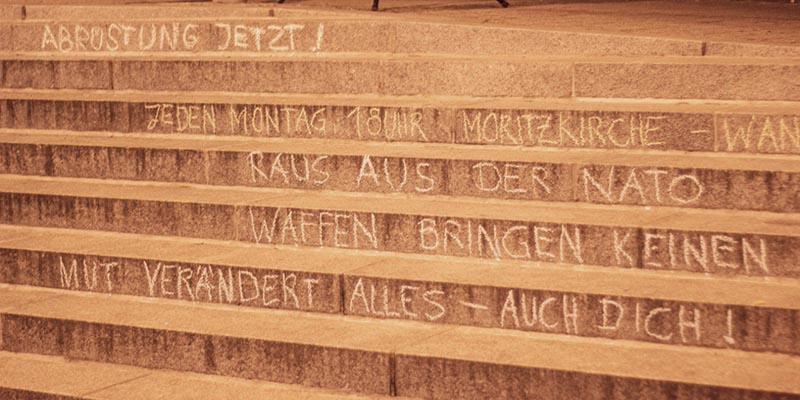 ABRÜSTUNG JETZT!
JEDEN MONTAG, 18UHR MORITZKIRCHE – WAN
RAUS AUS DER NATO
WAFFEN BRINGEN KEINEN
MUT VERÄNDERT ALLES – AUCH DICH!